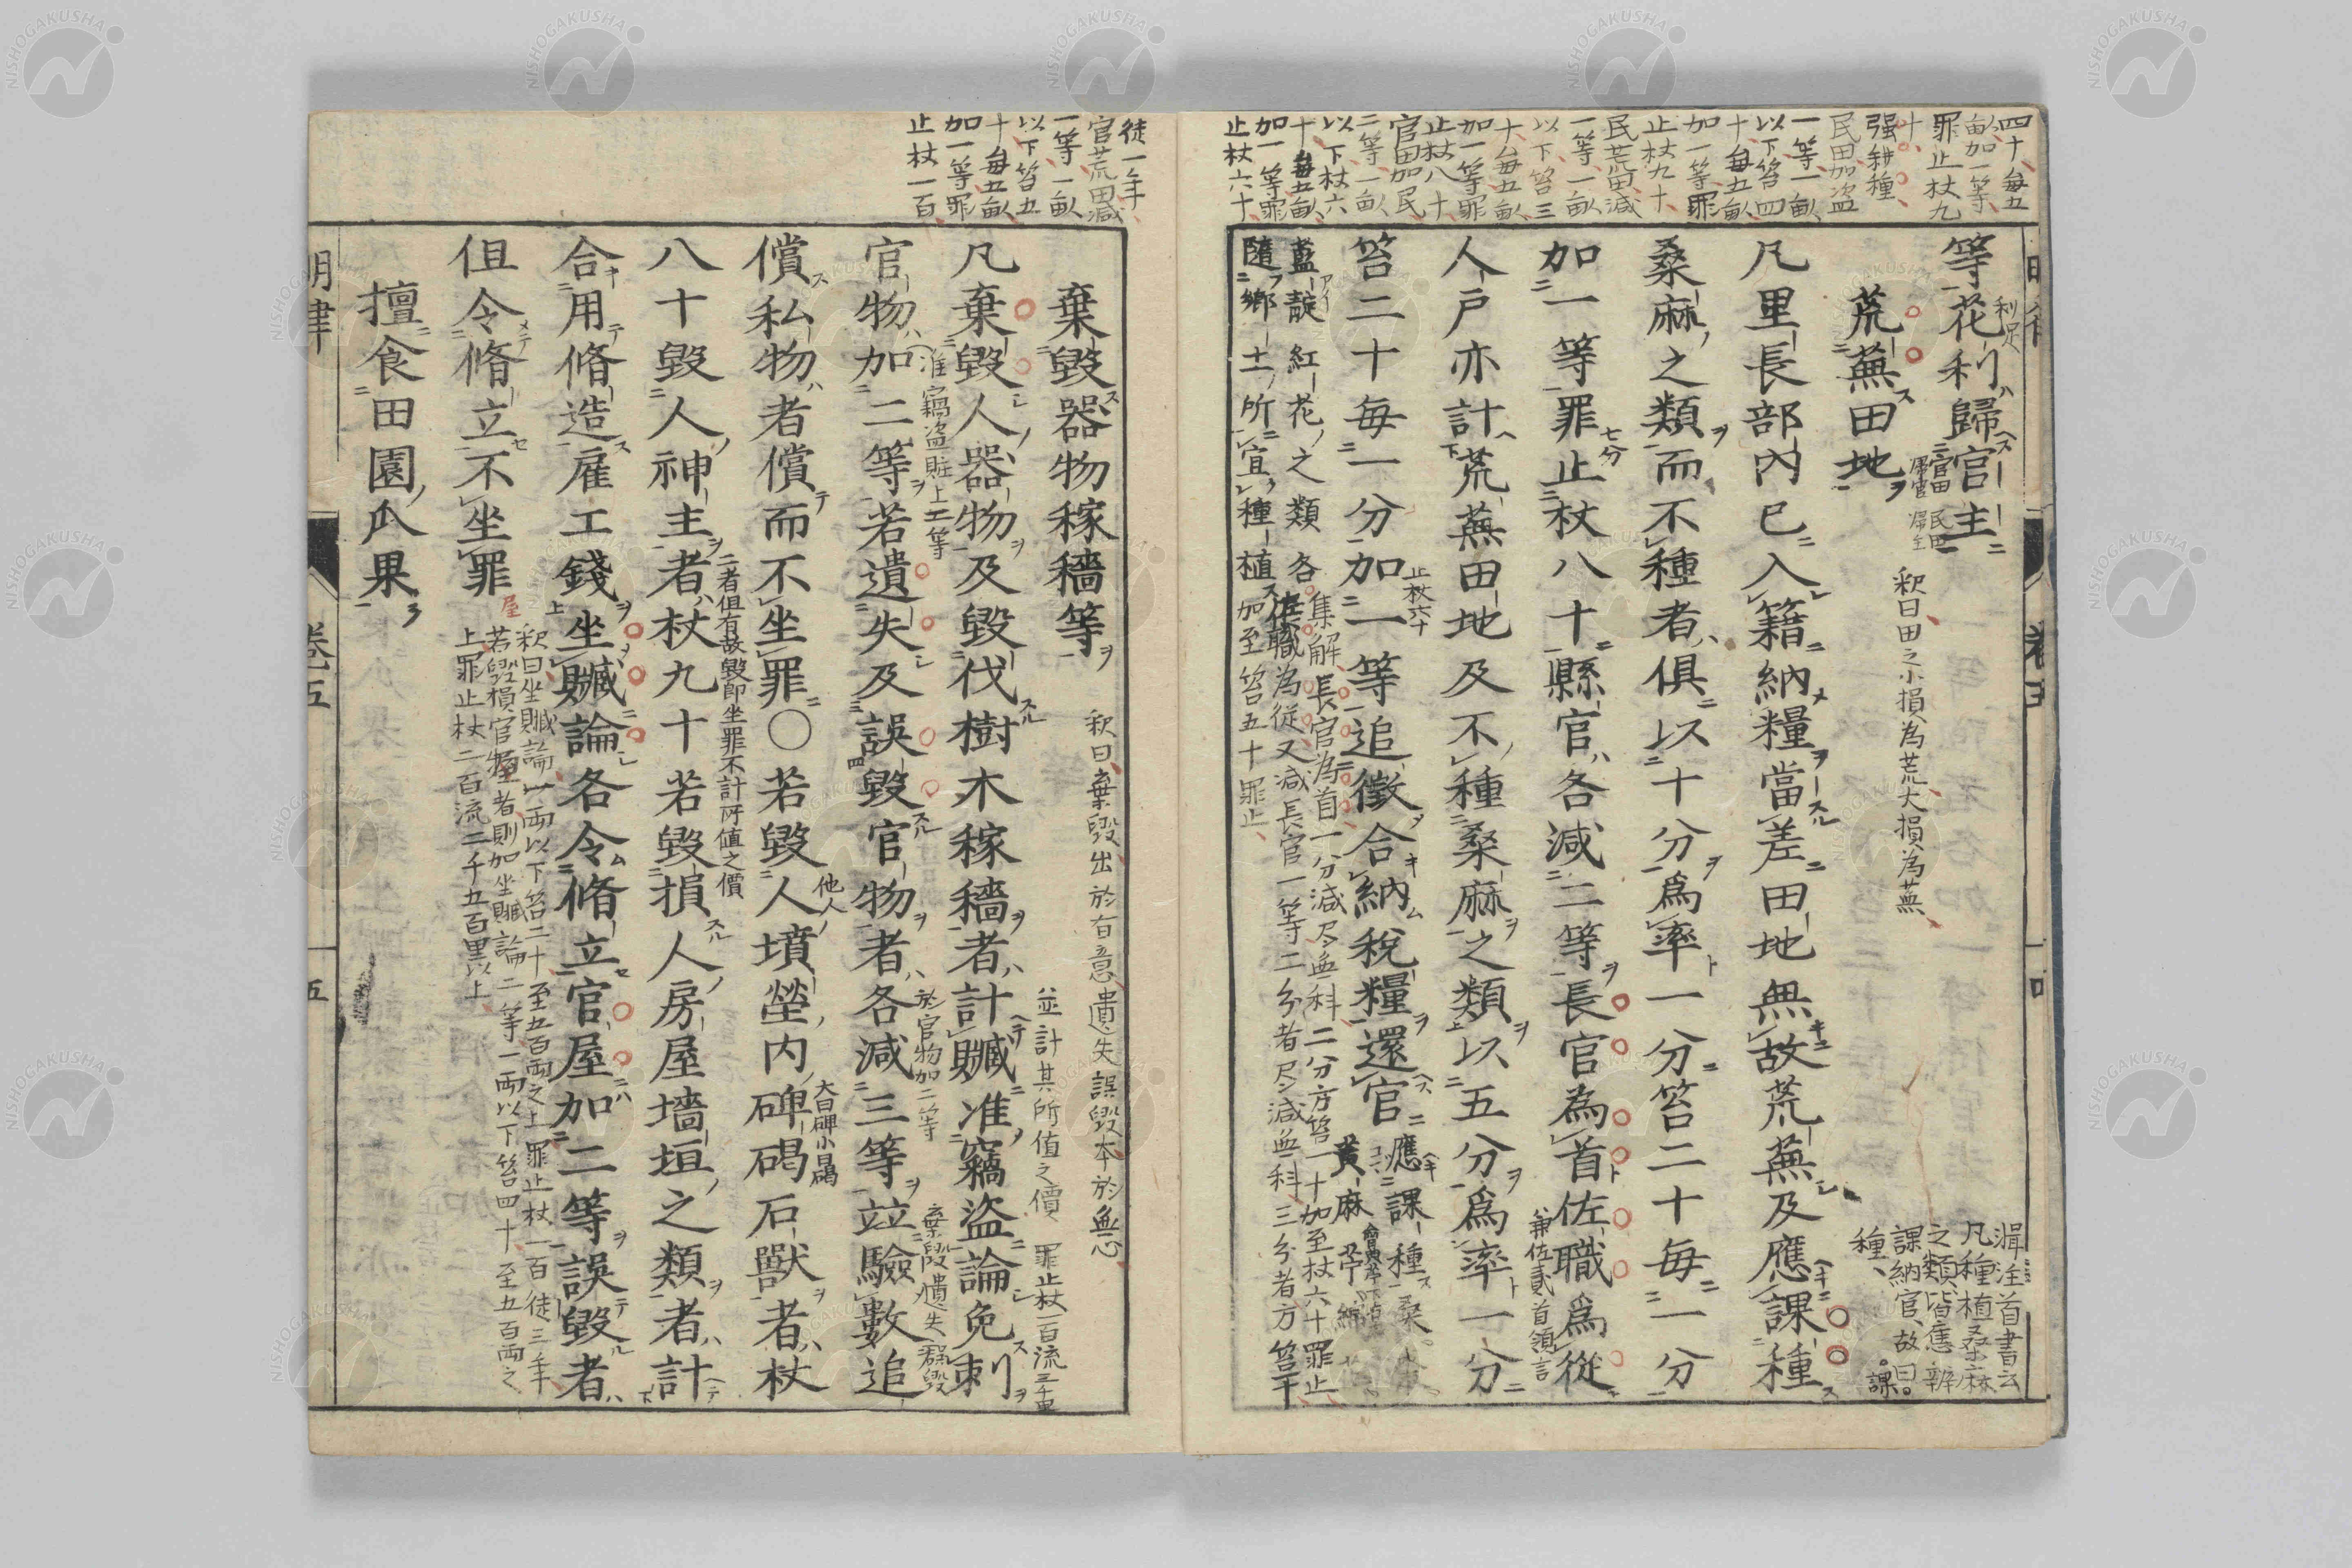 四十每五
畝加一等
罪止杖九
十
强耕種
民田加盜
一等一畝
以下笞四
十每五畝
加一等罪
止杖九十
民荒田減
一等一畝
以下笞三
十每五畝
加一等罪
止杖八十
官田加民
二等一畝
以下杖六
十每五畝
加一等罪
止杖六十
等花利歸官主
利足
官田歸官
民田歸主
荒蕪田地
釈曰田之小損為荒大損為蕪
輯註首書云
凡種植桑麻
之類皆應辦
課納官故曰課
種
凡里長部內已入籍納糧當差田地無故荒蕪及應課種
桑麻之類而不種者俱以十分爲率一分笞二十每一分
加一等罪止杖八十縣官各減二等長官為首佐職爲從
七分
兼佐貳首領言
人戶亦計荒蕪田地及不種桑麻之類以五分爲率一分
笞二十每一分加一等追徵合納稅糧還官
止杖六十
應課種桑
黃麻
集解長官為首一分減尽無科二分方笞一十加至杖六十罪止
佐職為從又減長官一等二分者尽減無科三分者方笞一十
加至笞五十罪止
藍靛紅花之類各
隨鄉土所宜種植
徒一年
官荒田減
一等一畝
以下笞五
十每五畝
加一等罪
止杖一百
棄毀器物稼穡等
釈曰棄毀出於有意遺失誤毀本於無心
並計其所值之價 罪止杖一百流三千里
凡棄毀人器物及毀伐樹木稼穡者計贓准竊盜論免刺
准竊盜贓上二等
於官物加二等
官物加二等若遺失及誤毀官物者各減三等竝驗數追
償私物者償而不坐罪〇若毀人墳塋內碑碣石獸者杖
他人
大曰碑小曰碣
二者但有故毀即坐罪不計所值之價
八十毀人神主者杖九十若毀損人房屋墻垣之類者計
合用脩造雇工錢坐贓論各令脩立官屋加二等誤毀者
釈曰坐贓論以一兩以下笞二十至五百兩之上罪止杖一百徒三年
若毀損官屋者則加坐贓論二等一兩以下笞四十至五百兩之
上罪止杖一百流二千五百里以上
屋
但令脩立不坐罪
擅食田園瓜果
明律
卷五
五